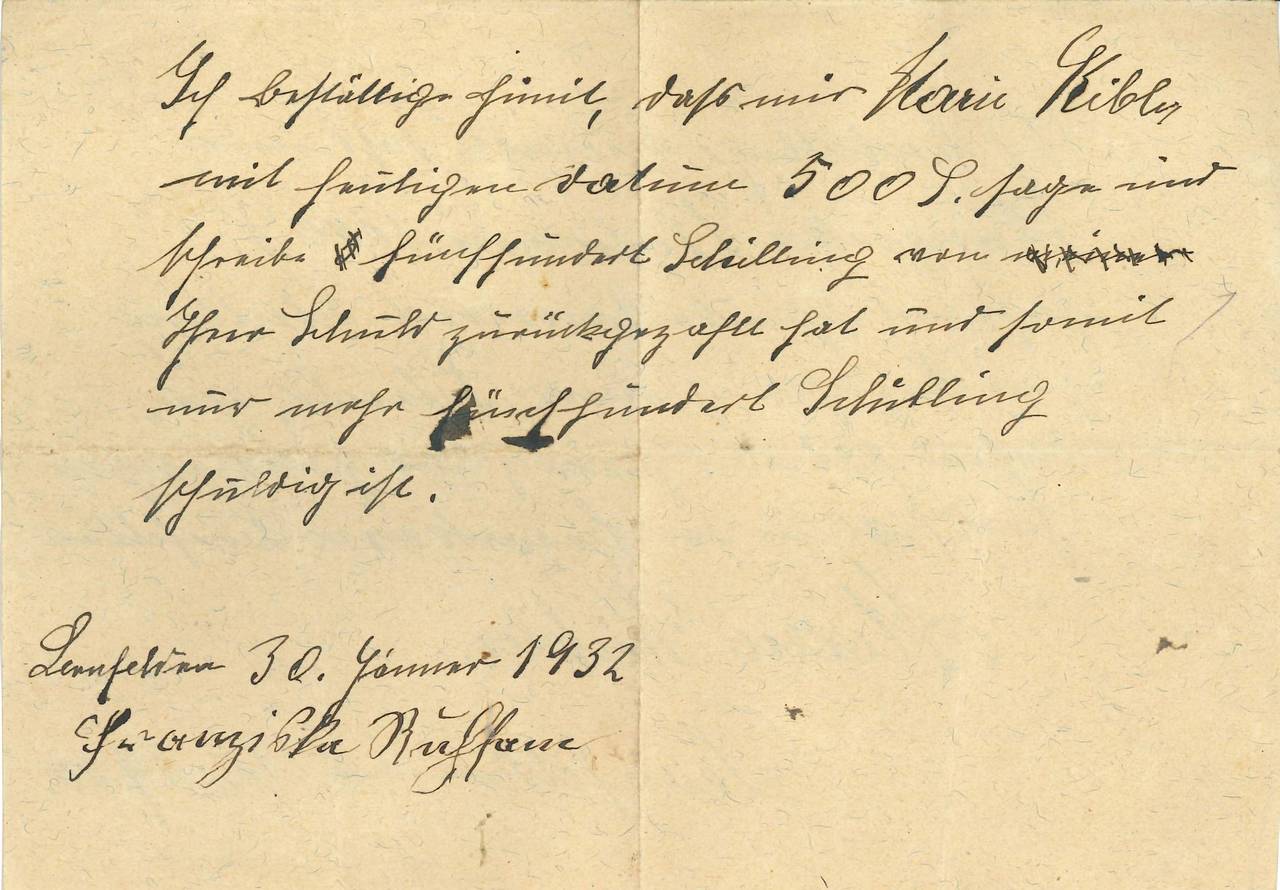 Ich bestättige himit, dass mir Marie Kibler
mit heutigen Datum 500 S. sage und
schreibe fünfhundert Schilling von meiner
Ihrer Schuld zurückgezahlt hat und somit
nur mehr fünfhundert Schilling
schuldig ist.
30. Jänner 1932
Franziska Ruhsam